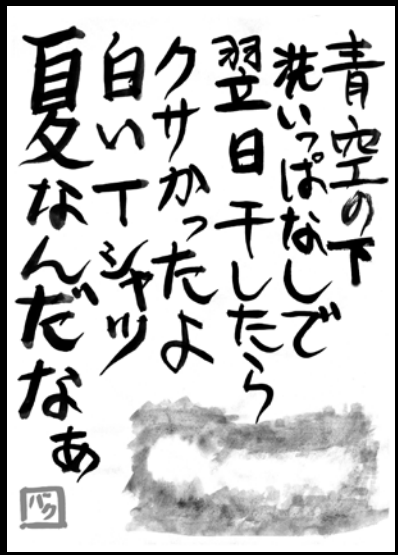 青空の下
洗いっぱなしで
翌日干したら
クサかったよ
白いTシャツ
夏なんだなぁ
バク